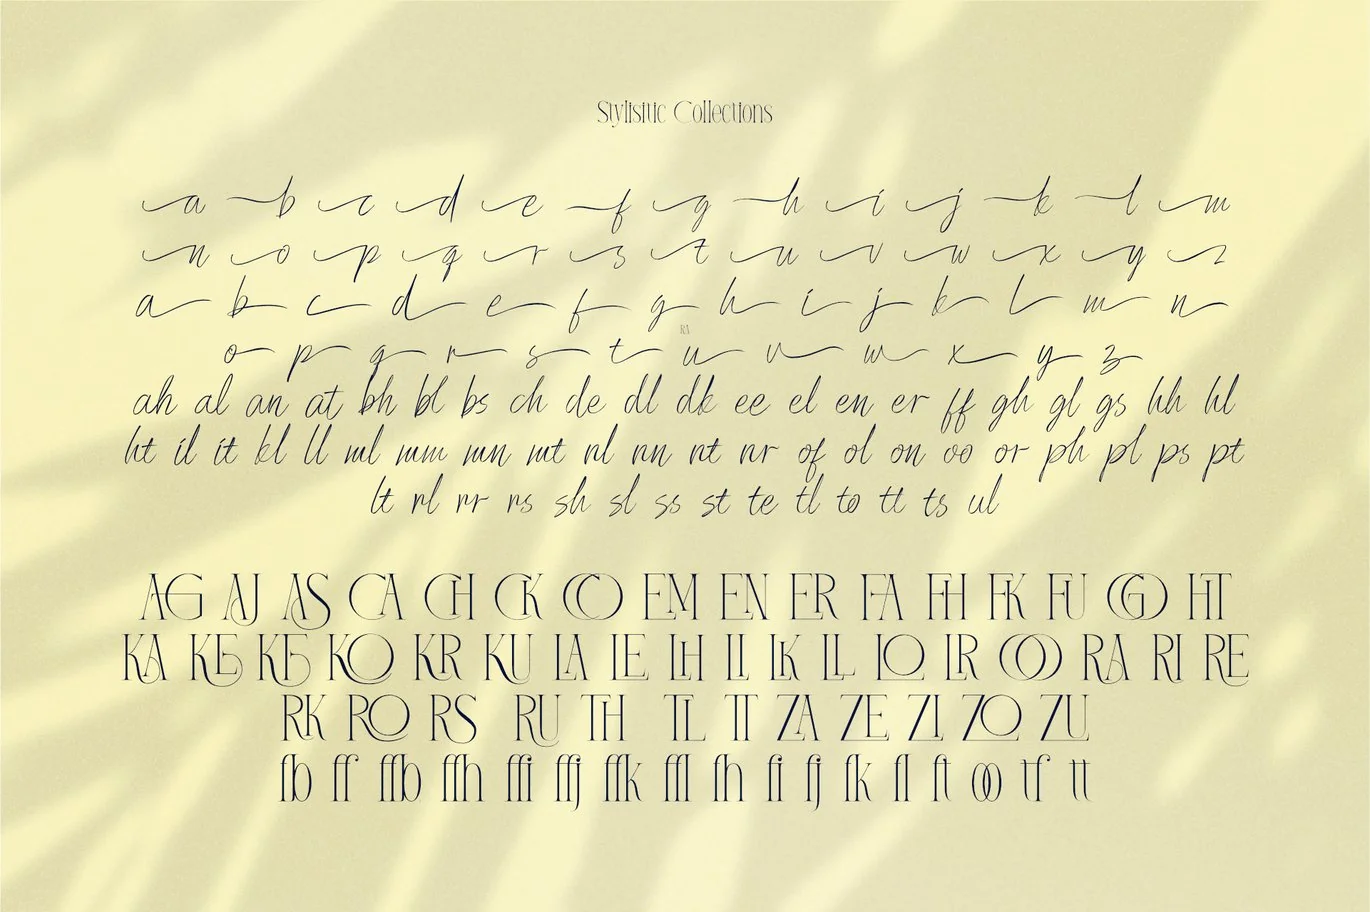 Stylistic Collections
a b c d e f g h i j k l m
n o p q r s t u v w x y z
a b c d e f g h i j k l m n
RA
o p q r s t u v w x y z
ah al an at bh bl bs ch de dl dk ee el en er ff gh gl gs hh hl
ht il it kl ll ml mm mn mt nl nn nt nr of ol on oo or ph pl ps pt
lt rl rr rs sh sl ss st te tl to tt ts ul
AG AJ AS CA CH CK CO EM EN ER FA FH FK FU GO HT
KA KE KF KO KR KU LA LE LH LI LK LL LO LR OO RA RI RE
RK RO RS RU TH TL TT ZA ZE ZI ZO ZU
fb ff ffb ffh ffi ffj ffk ffl fh fi fj fk fl ft oo tf tt